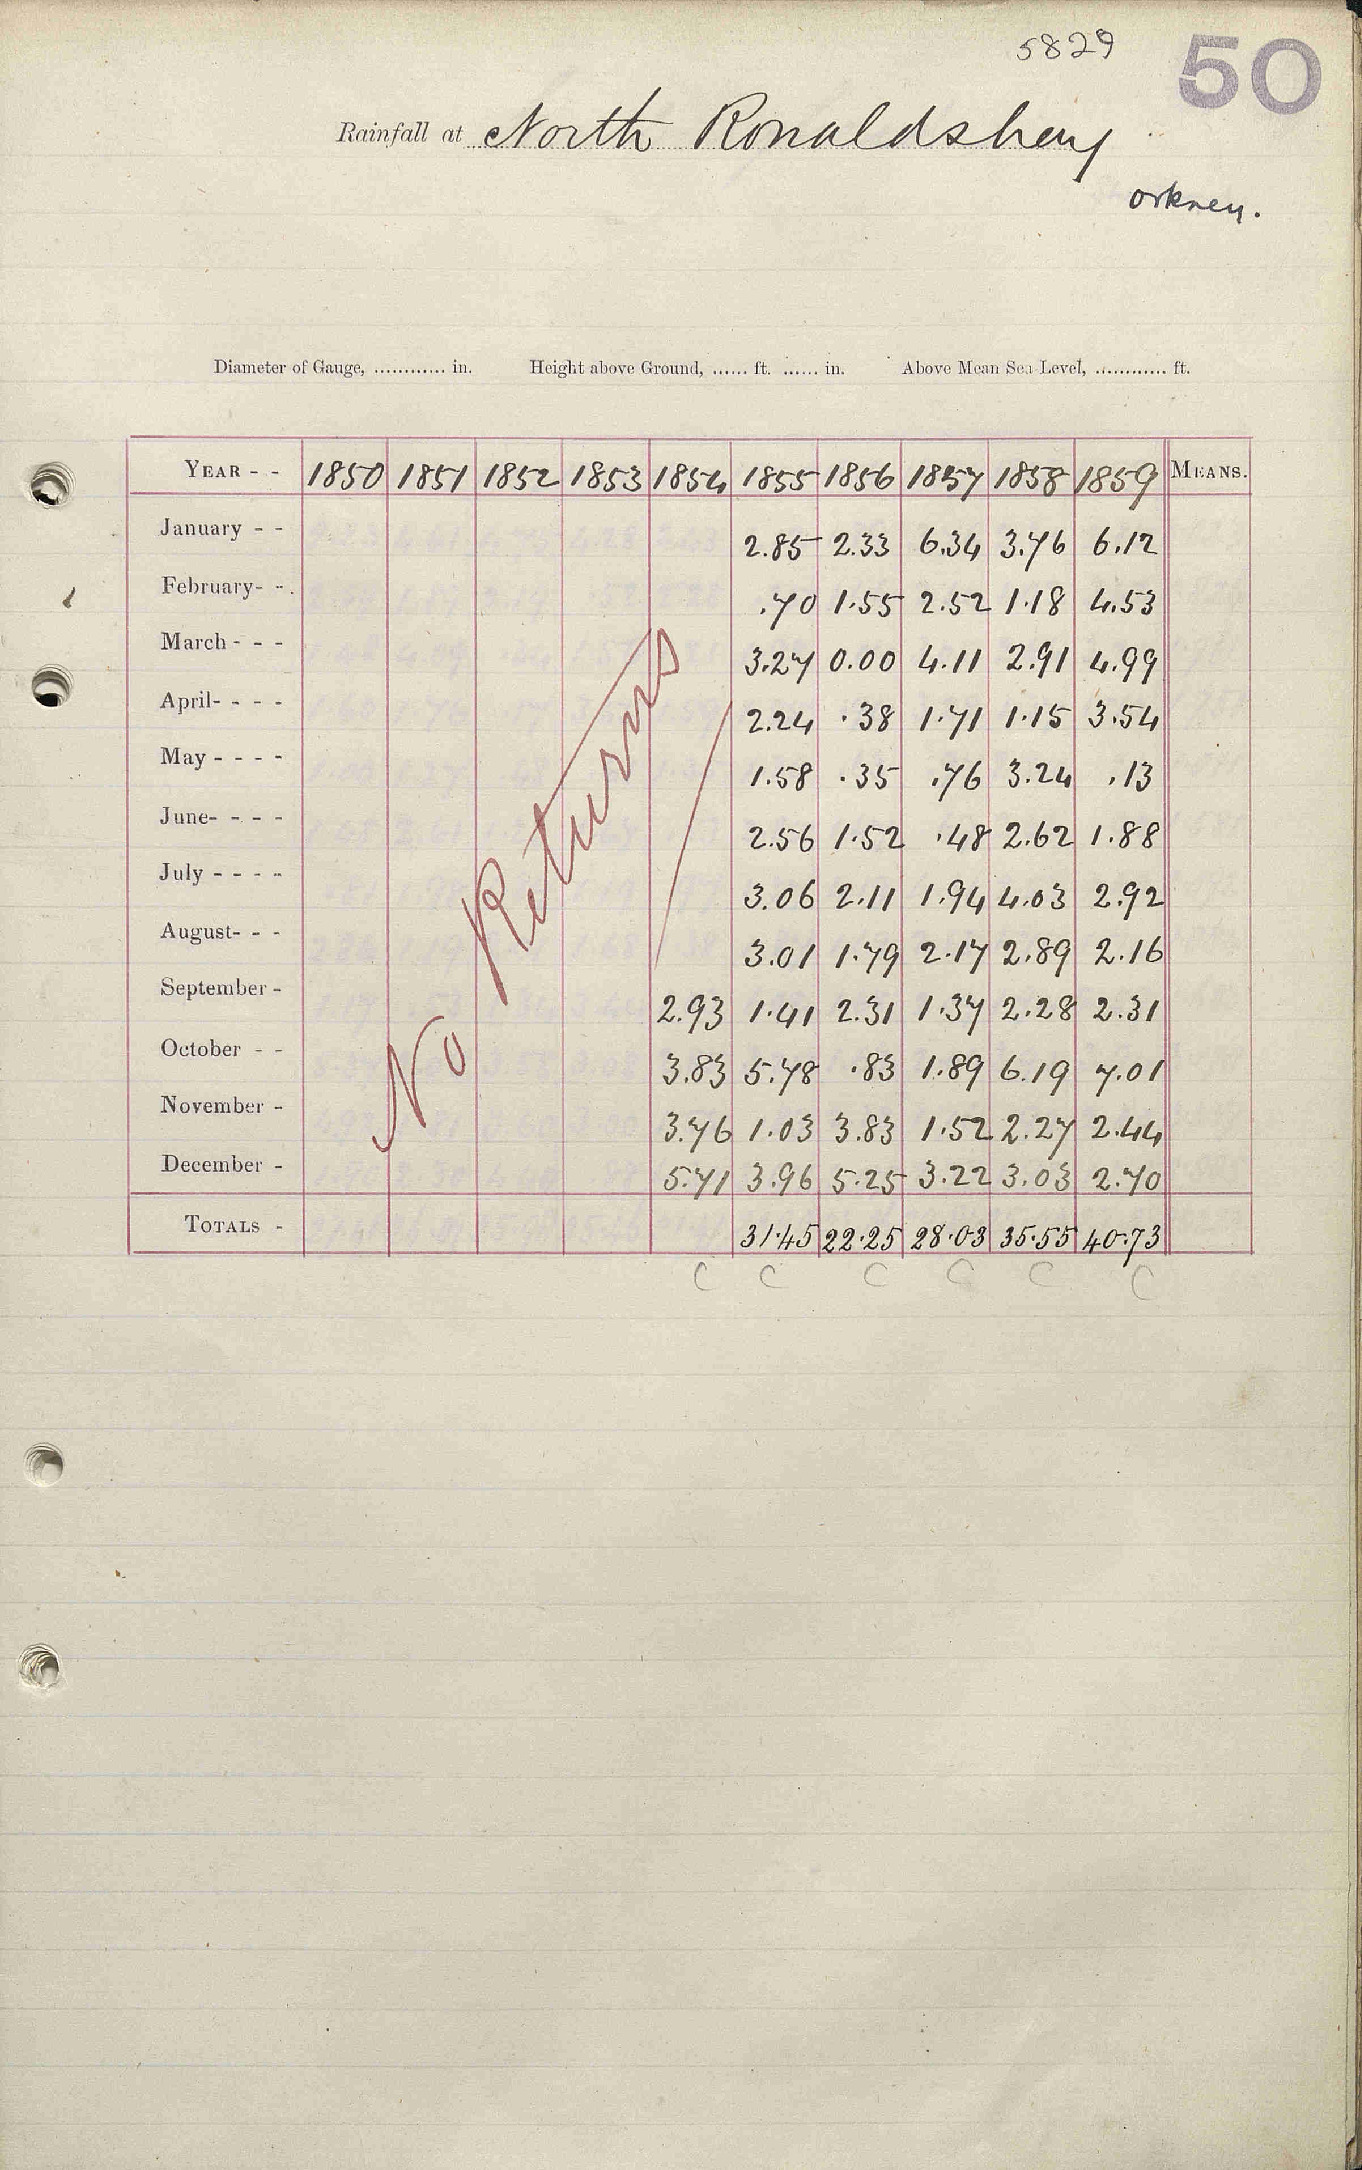 5829
50
Rainfall at North Ronaldshay
Orkney.
Diameter of Gauge, ............ in. Height above Ground, ...... ft. ...... in. Above Mean Sea Level, ............ ft.
YEAR - - 1850 1851 1852 1853 1854 1855 1856 1857 1858 1859 MEANS.
January - - 2.85 2.33 6.34 3.76 6.12
February - - .70 1.55 2.52 1.18 4.53
March - - - 3.27 0.00 4.11 2.91 4.99
April - - - - 2.24 .38 1.71 1.15 3.54
May - - - - 1.58 .35 .76 3.24 .13
June - - - - 2.56 1.52 .48 2.62 1.88
July - - - - 3.06 2.11 1.94 4.03 2.92
August - - - 3.01 1.79 2.17 2.89 2.16
September - 2.93 1.41 2.31 1.37 2.28 2.31
October - - 3.83 5.78 .83 1.89 6.19 7.01
November - 3.76 1.03 3.83 1.52 2.27 2.44
December - 5.71 3.96 5.25 3.22 3.03 2.70
TOTALS - 31.45 22.25 28.03 35.55 40.73
C C C C C C
No Returns